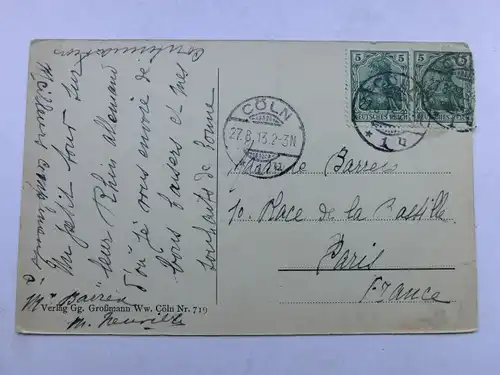 continuation
Un petit tour sur
leur Rhin allemand
d'où je vous envoie de
bons baisers et mes
souhaits de bonne
Meilleurs
à Mr Barren
Verlag Gg. Großmann Ww. Cöln Nr. 719
CÖLN
27.8.13.2-3N
* 1 u
5 5
DEUTSCHES REICH
5 5
Madame Barren
10. Place de la Bastille
Paris
France